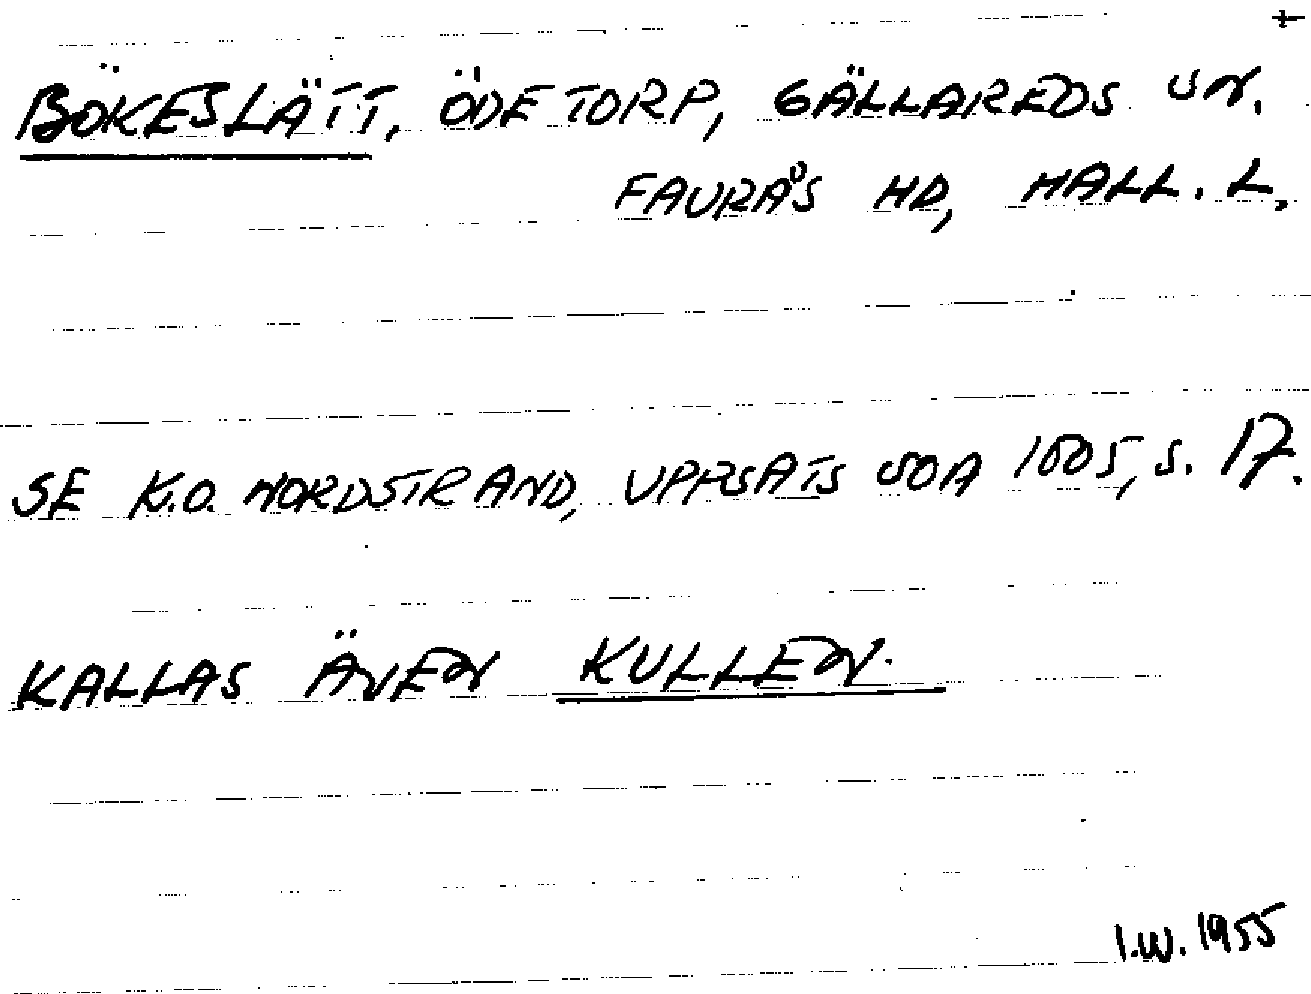 +
BÖKESLÄTT, ÖDETORP, GÄLLAREDS SN.
FAURÅS HD, HALL. L.
SE K.O. NORDSTRAND, UPPSATS SOA 1005, S. 17.
KALLAS ÄVEN KULLEN.
I.W. 1955